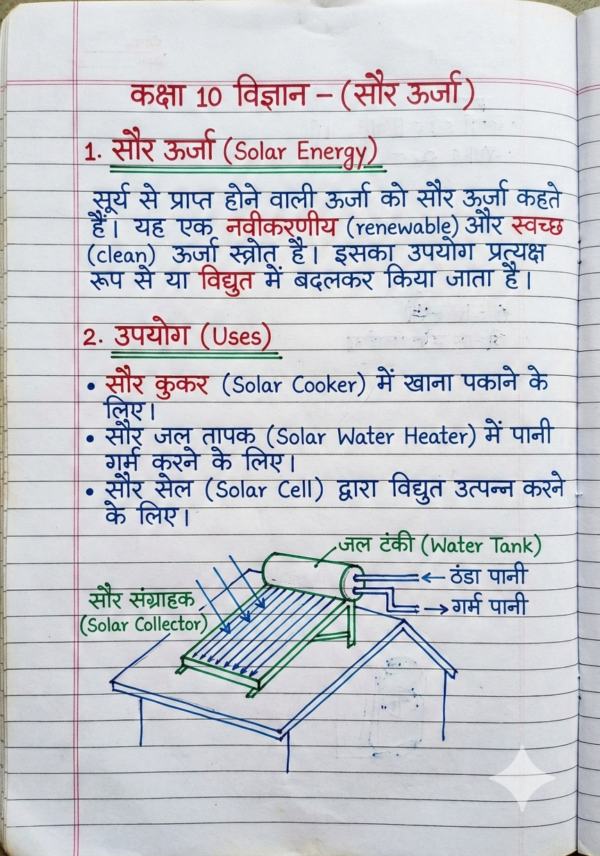 कक्षा 10 विज्ञान – (सौर ऊर्जा)
1. सौर ऊर्जा (Solar Energy)
सूर्य से प्राप्त होने वाली ऊर्जा को सौर ऊर्जा कहते
हैं। यह एक नवीकरणीय (renewable) और स्वच्छ
(clean) ऊर्जा स्त्रोत है। इसका उपयोग प्रत्यक्ष
रूप से या विद्युत में बदलकर किया जाता है।
2. उपयोग (Uses)
• सौर कुकर (Solar Cooker) में खाना पकाने के
लिए।
• सौर जल तापक (Solar Water Heater) में पानी
गर्म करने के लिए।
• सौर सेल (Solar Cell) द्वारा विद्युत उत्पन्न करने
के लिए।
जल टंकी (Water Tank)
← ठंडा पानी
सौर संग्राहक
→ गर्म पानी
(Solar Collector)